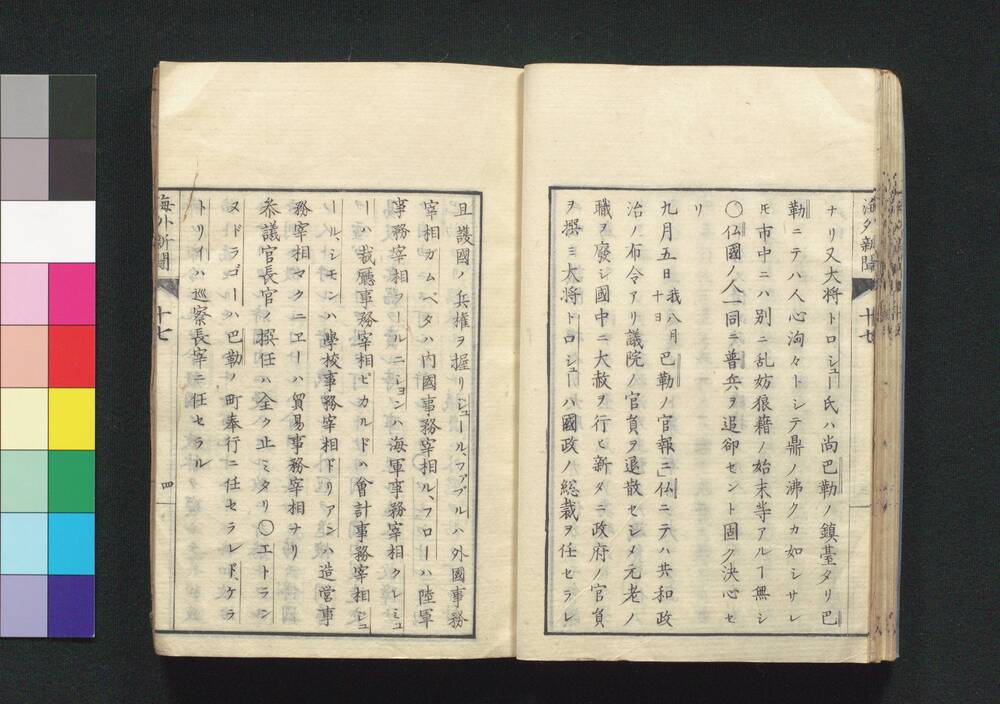 海外新聞
十七
ナリ又大将トロシュー氏ハ尚巴勒ノ鎮臺タリ巴
勒ニテハ人心洶々トシテ鼎ノ沸クカ如シサレ
𪜈市中ニハ別ニ乱妨狼藉ノ始末等アルヿ無シ
〇仏國ノ人一同ニ普兵ヲ追却セント固ク決心セ
リ
九月五日我八月十日巴勒ノ官報ニ」仏ニテハ共和政
治ノ布令アリ議院ノ官負ヲ退散セシメ元老ノ
職ヲ廢シ國中ニ大赦ヲ行ヒ新タニ政府ノ官負
ヲ撰ミ大将トロシューハ國政ノ総裁ヲ任セラレ
且護國ノ兵権ヲ握リジュール、ファブルハ外國事務
宰相ガムベタハ内國事務宰相ル、フローハ陸軍
事務宰相フールニションハ海軍事務宰相クレミュ
ーハ裁廳事務宰相ピカルドハ會計事務宰相ジュ
ール、シモンハ學校事務宰相ドリアンハ造営事
務宰相マクニエーハ貿易事務宰相ナリ
叅議官長官ノ撰任ハ全ク止ミタリ〇エトラン
ヌドラゴーハ巴勒ノ町奉行ニ任セラレド、ケラ
トリイハ巡察長宰ニ任セラル
海外新聞
十七
四